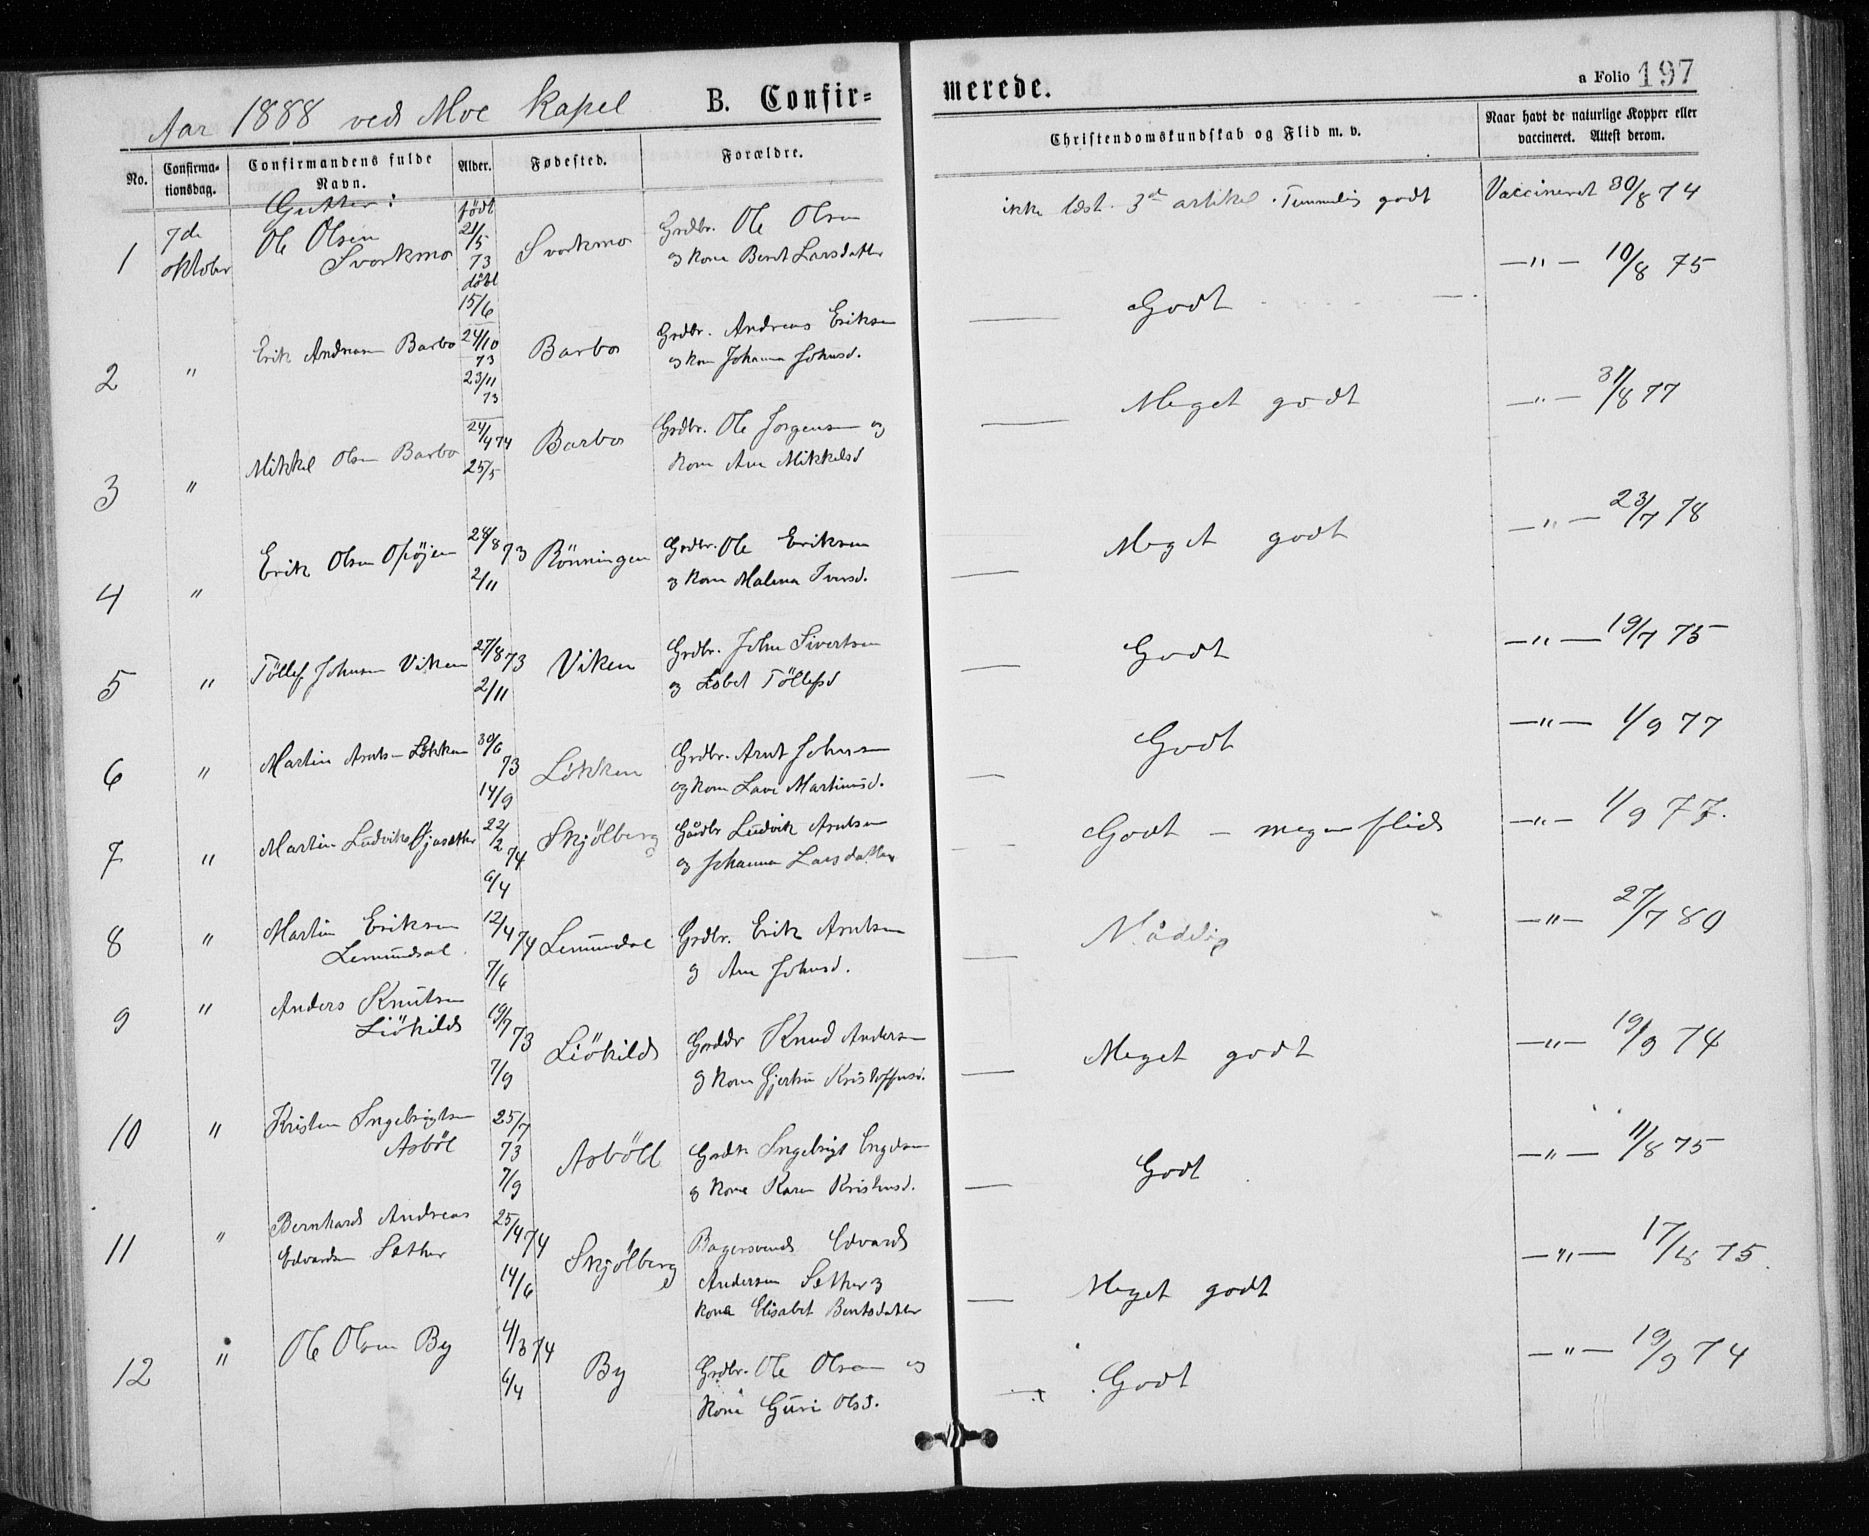 Aar 1888 ved Moe Kapel B. Confir= merede. a Folio 197
No. Confirma-tionsdag. Confirmandens fulde Navn. Alder. Fødested. Forældre. Christendomskundskab og Flid m. v. Naar havt de naturlige Kopper eller vaccineret. Attest derom.
Gutter: født
1 7de oktober Ole Olsen Svorkmo 21/5 73 döbt 15/6 Svorkmo Grdbr. Ole Olsen
og kone Berit Larsdatter ikke læst 3de artikel. Temmelig godt Vaccineret 30/8 74
2 " Erik Andreasen Barbo 24/10 73 23/11 73 Barbo Grdbr. Andreas Eriksen
og kone Johanna Johnsd. — Godt —"— 10/8 75
3 " Mikkel Olsen Barbo 24/4 74 25/5 Barbo Grdbr. Ole Jörgensen og
kone Ane Mikkelsd — Meget godt —"— 31/8 77
4 " Erik Olsen 28/8 73 2/11 Rönningen Grdbr. Ole Eriksen
og kone Malena Iversd. — Meget godt —"— 23/7 78
5 " Töllef Johnsen Viken 27/8 73 2/11 Viken Grdbr. John Sivertsen
og Lisbet Töllefsd — Godt —"— 19/7 75
6 " Martin Arntsen Lökken 30/6 73 14/9 Lökken Grdbr. Arnt Johnsen
og kone Martinusd. — Godt —"— 1/9 77
7 " Martin 22/2 74 6/4 Skjölberg Ludvik Arntsen
og Johanna Larsdatter — Godt – megen flid —"— 1/9 77.
8 " Martin Eriksen
Lemundsal 12/4 74 7/6 Lemundsal Grdbr. Erik Arntsen
og Ane Johnsd. — Mådelig —"— 27/7 80
9 " Anders Knutsen
Liökild 19/7 73 7/9 Liökild Knud Andersen
og kone Gjertru Kristoffersd. — Meget godt —"— 19/9 74
10 " Kristen Ingebrigtsen
Asböl 25/7 73 7/9 Asböll Ingebrigt
og kone Karen Kristensd. — Godt —"— 11/8 75
11 " Bernhard Andreas
Edvardsen Sæther 25/4 74 14/6 Skjölberg Bagersvend Edvard
Andersen Sether og
kone Elisabet Bentsdatter — Meget godt —"— 17/8 75.
12 " Ole Olsen By 4/3 74 6/4 By Grdbr. Ole Olsen og
kone Guri Olsd. — Godt —"— 19/9 74